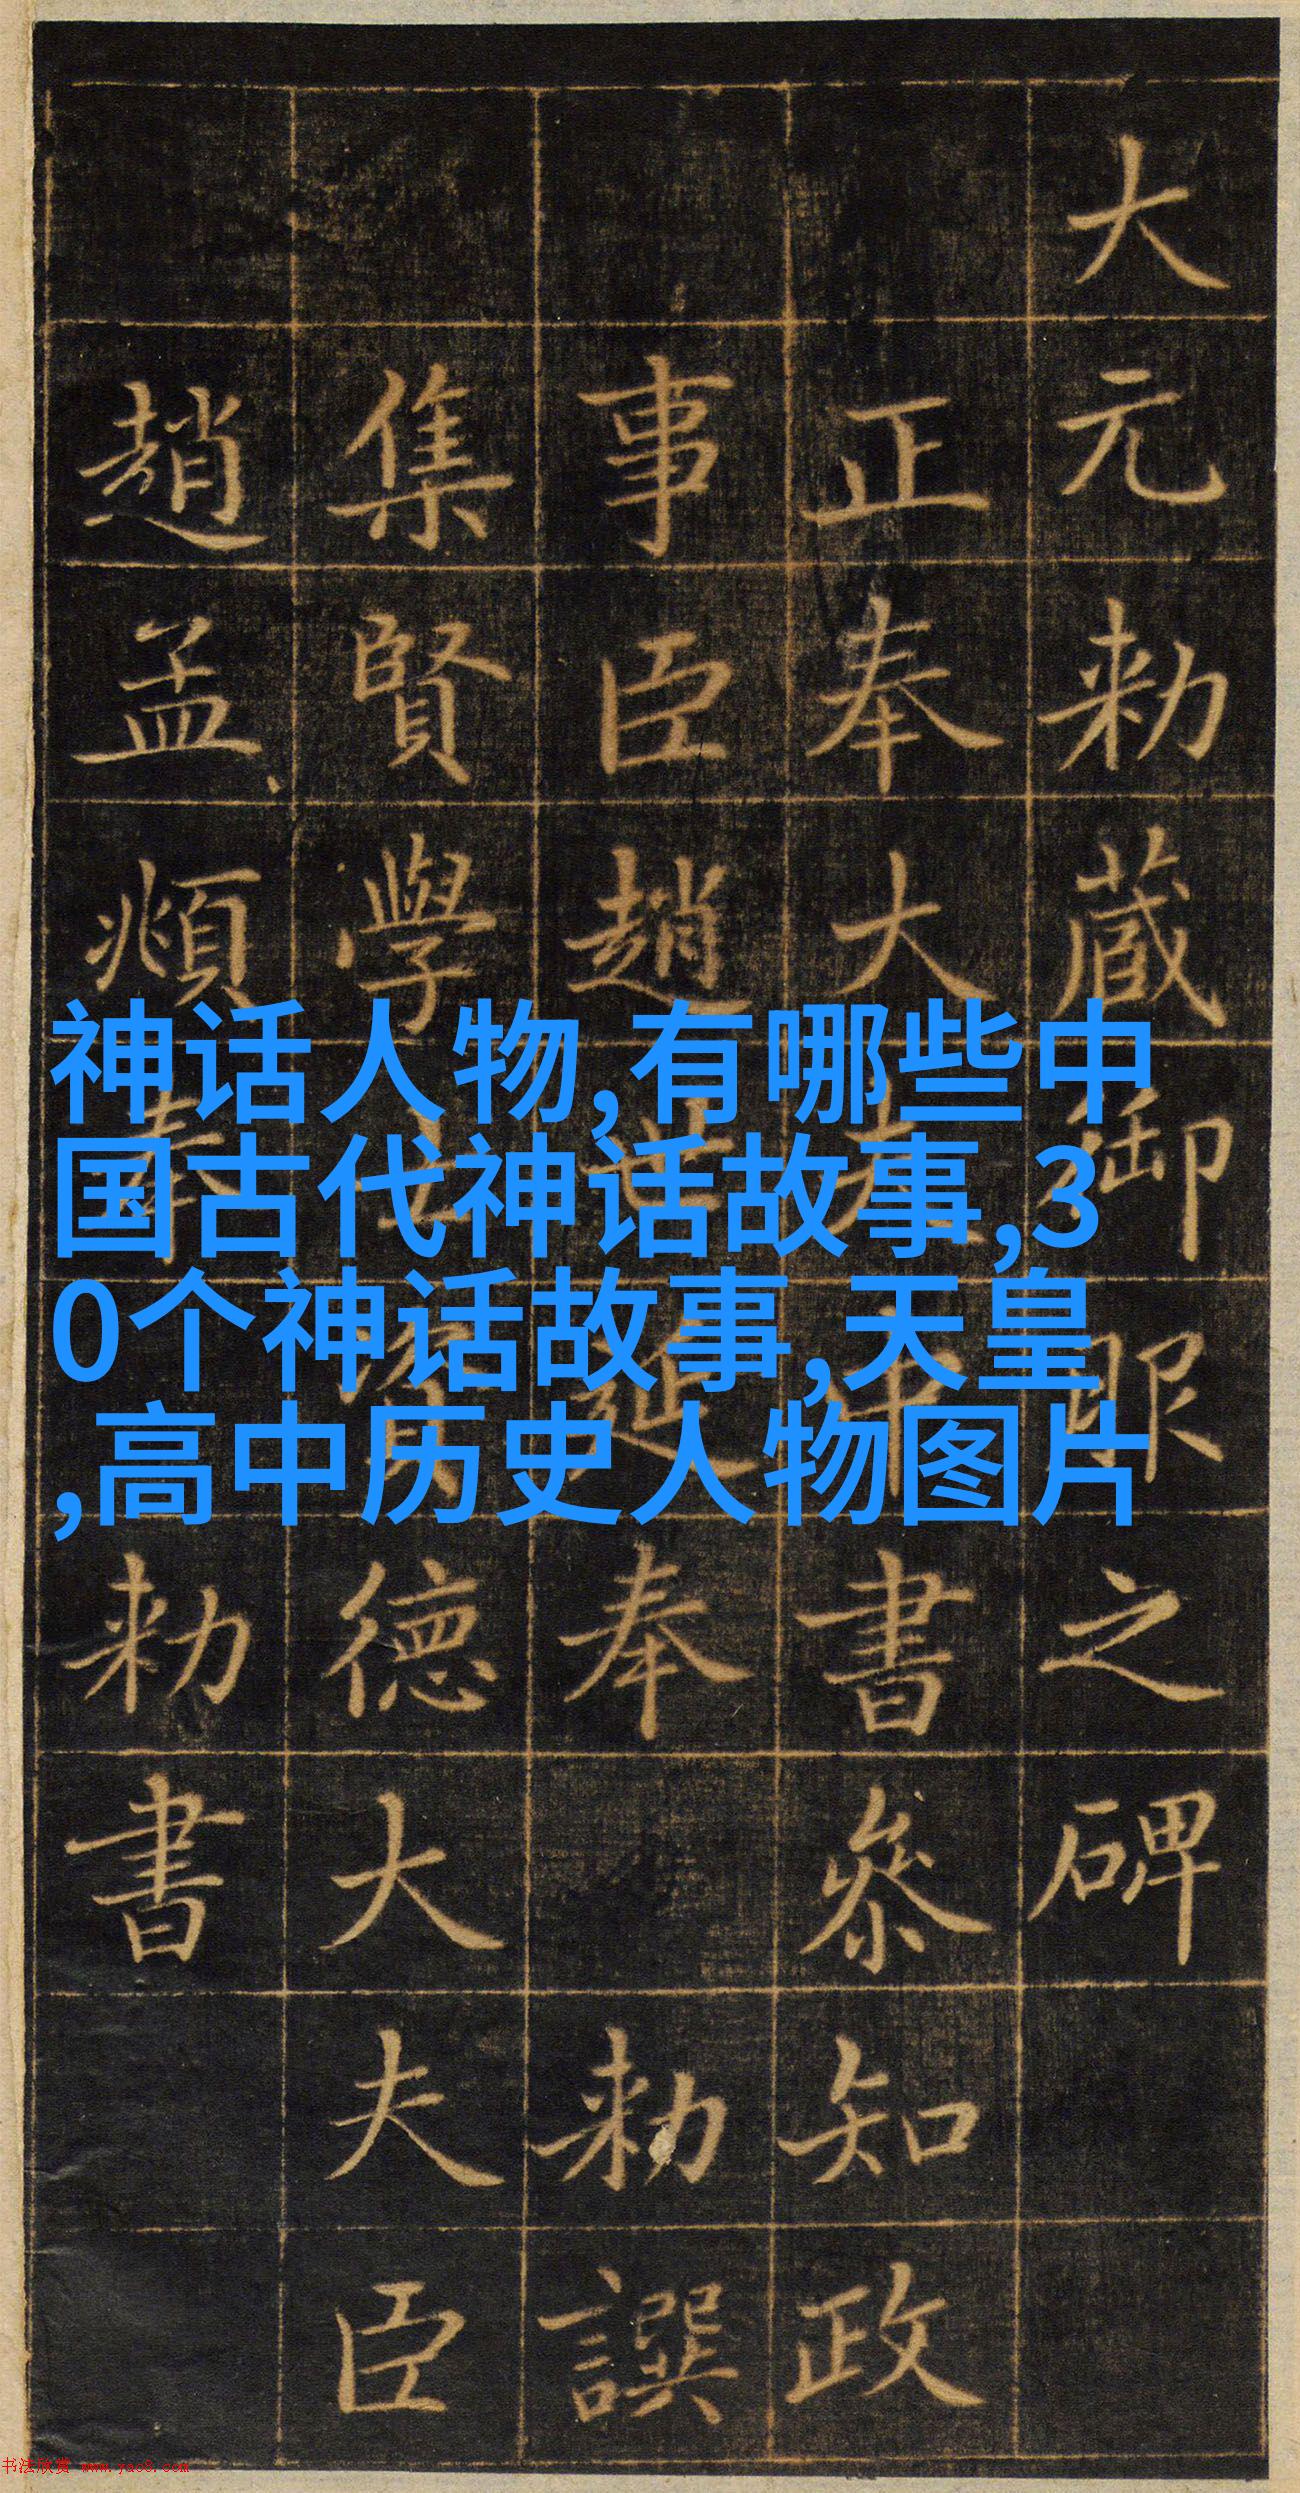 大元勅藏御服之碑
正奉大夫中書參知政
事臣趙世延奉勅譔
集賢學士資德大夫臣
趙孟頫奉勅書
神话人物,有哪些中
国古代神话故事,3
0个神话故事,天皇
,高中历史人物图片
书法欣赏 www.yac8.com